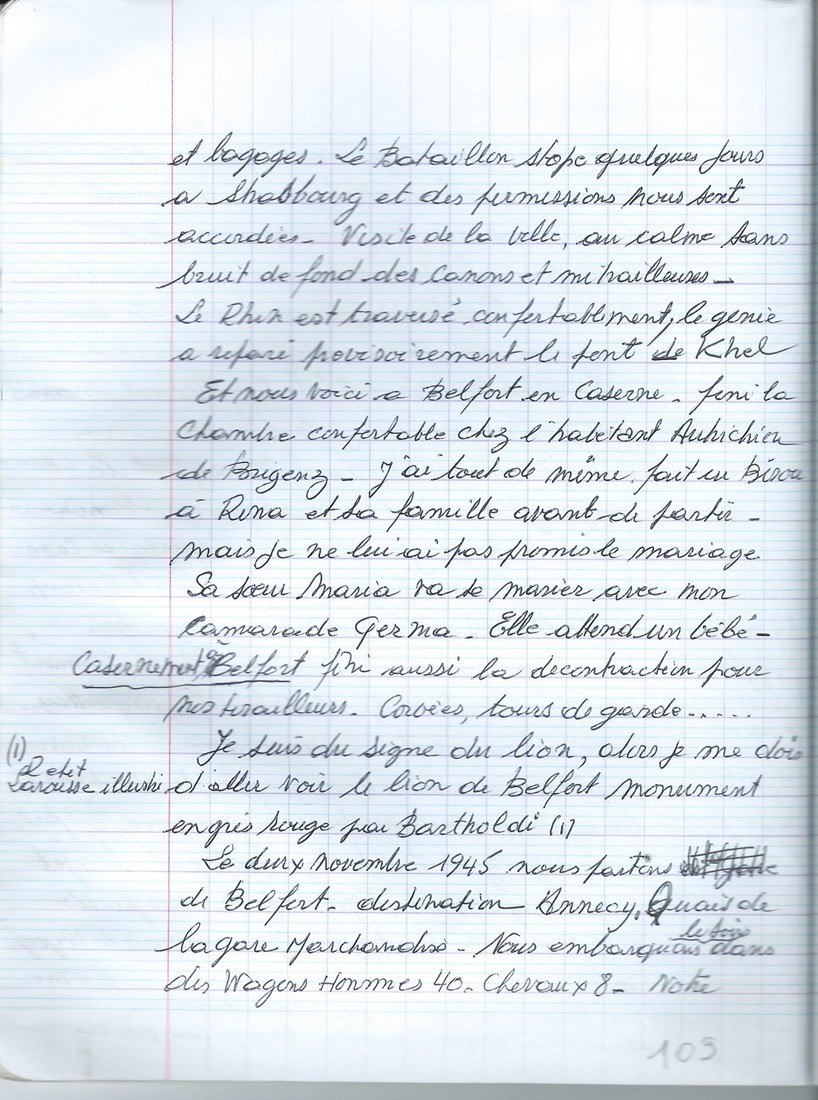 et bagages. Le Bataillon stope quelques jours
a Strasbourg et des permissions nous sont
accordées - Visite de la ville, au calme sans
bruit de fond des canons et mitrailleuses -
Le Rhin est traversé confortablement, le génie
a reparé provisoirement le pont de Khel
Et nous voici a Belfort en Caserne - fini la
Chambre confortable chez l'habitant Autrichien
de Brigenz - J'ai tout de même fait un Bisou
à Rina et sa famille avant de partir -
mais je ne lui ai pas promis le mariage
Sa sœur Maria va se marier avec mon
Camarade Germa. Elle attend un bébé -
Casernement Belfort fini aussi la decontraction pour
nos tirailleurs. Corvées, tours de garde.....
Je suis du signe du lion, alors je me dois
(1)
Petit
Larousse illustré
d'aller voir le lion de Belfort monument
en grès rouge par Bartholdi (1)
Le deux novembre 1945 nous partons
de Belfort - destination Annecy. Quais de
la gare Marchandise - Nous embarquons dans
des Wagons Hommes 40 - Chevaux 8 - Notre
109